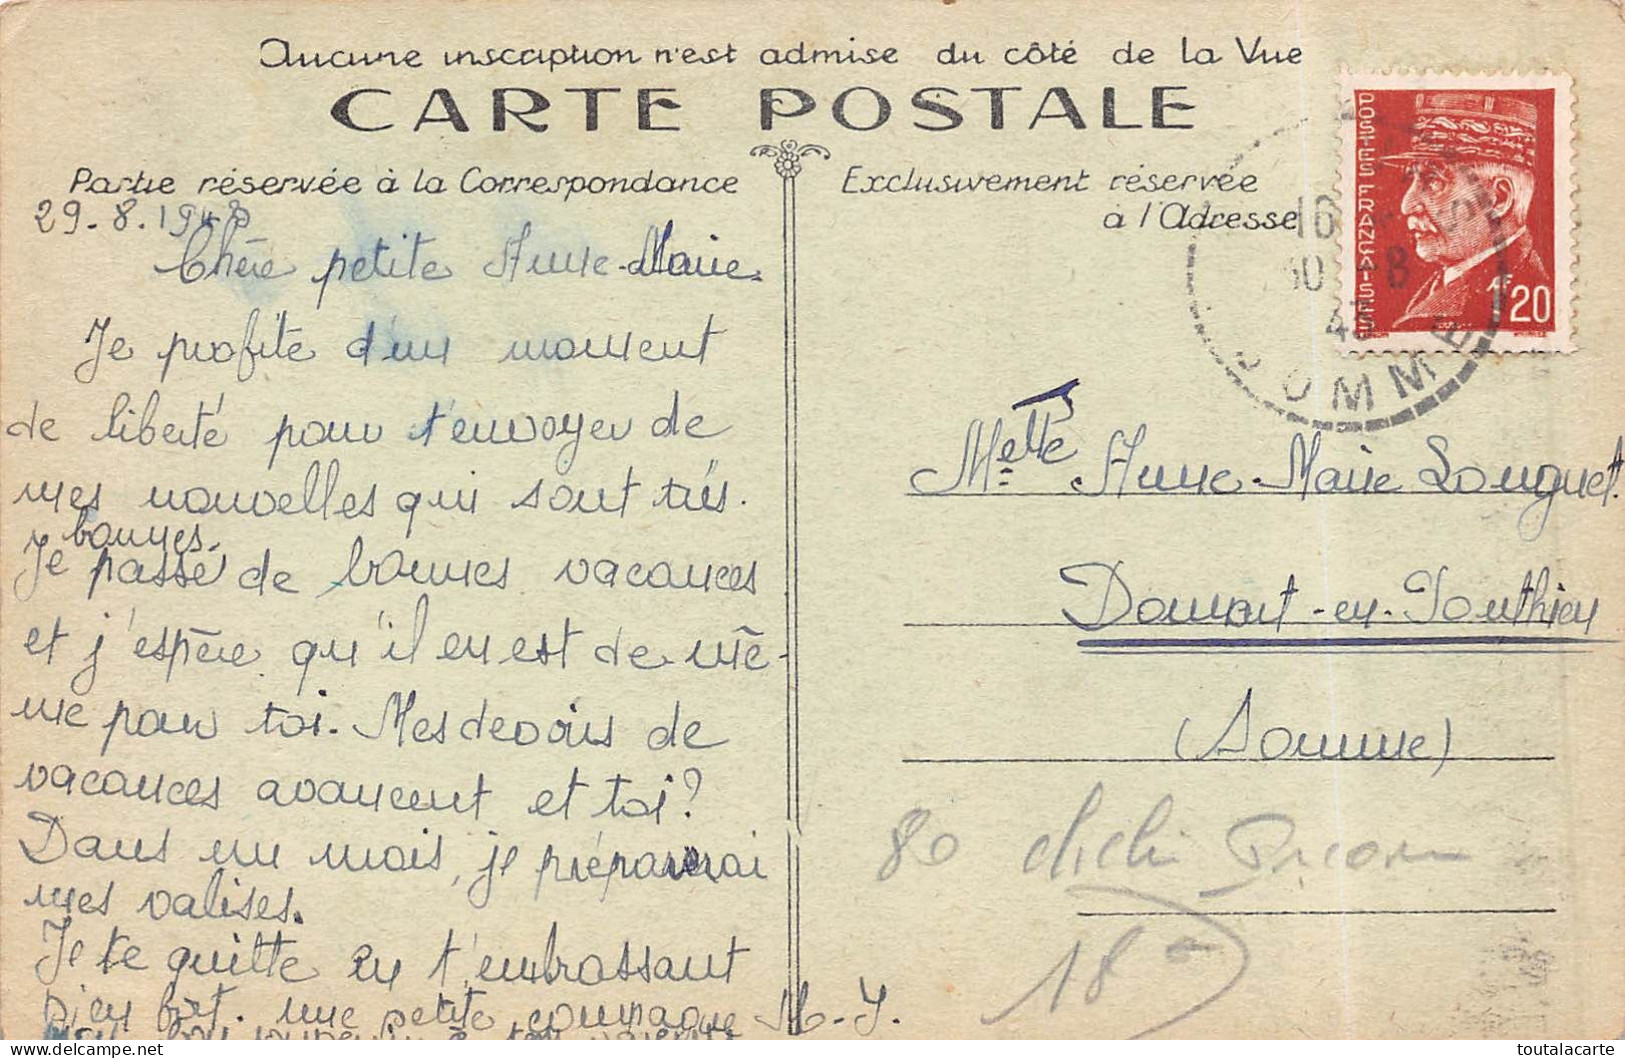 Aucune inscription n'est admise du côté de la Vue
CARTE POSTALE
Partie réservée à la Correspondance
29-8.1943
Chère petite Anne-Marie.
Je profite d'un moment
de liberté pour t'envoyer de
mes nouvelles qui sont très.
bonnes.
Je passe de bonnes vacances
et j'espère qu'il en est de mê-
me pour toi. Mes devoirs de
vacances avancent et toi?
Dans un mois, je préparerai
mes valises.
Je te quitte en t'embrassant
bien fort. une petite compagne M-J.
mon bon souvenir à ton
Exclusivement réservée
à l'Adresse
POSTES FRANÇAISES
1F20
16
30 -8
43
SOMME
Melle Anne-Marie Longuet.
Domart-en-Ponthieu
(Somme)
80 cliché
18
toutalacarte
delcampe.net